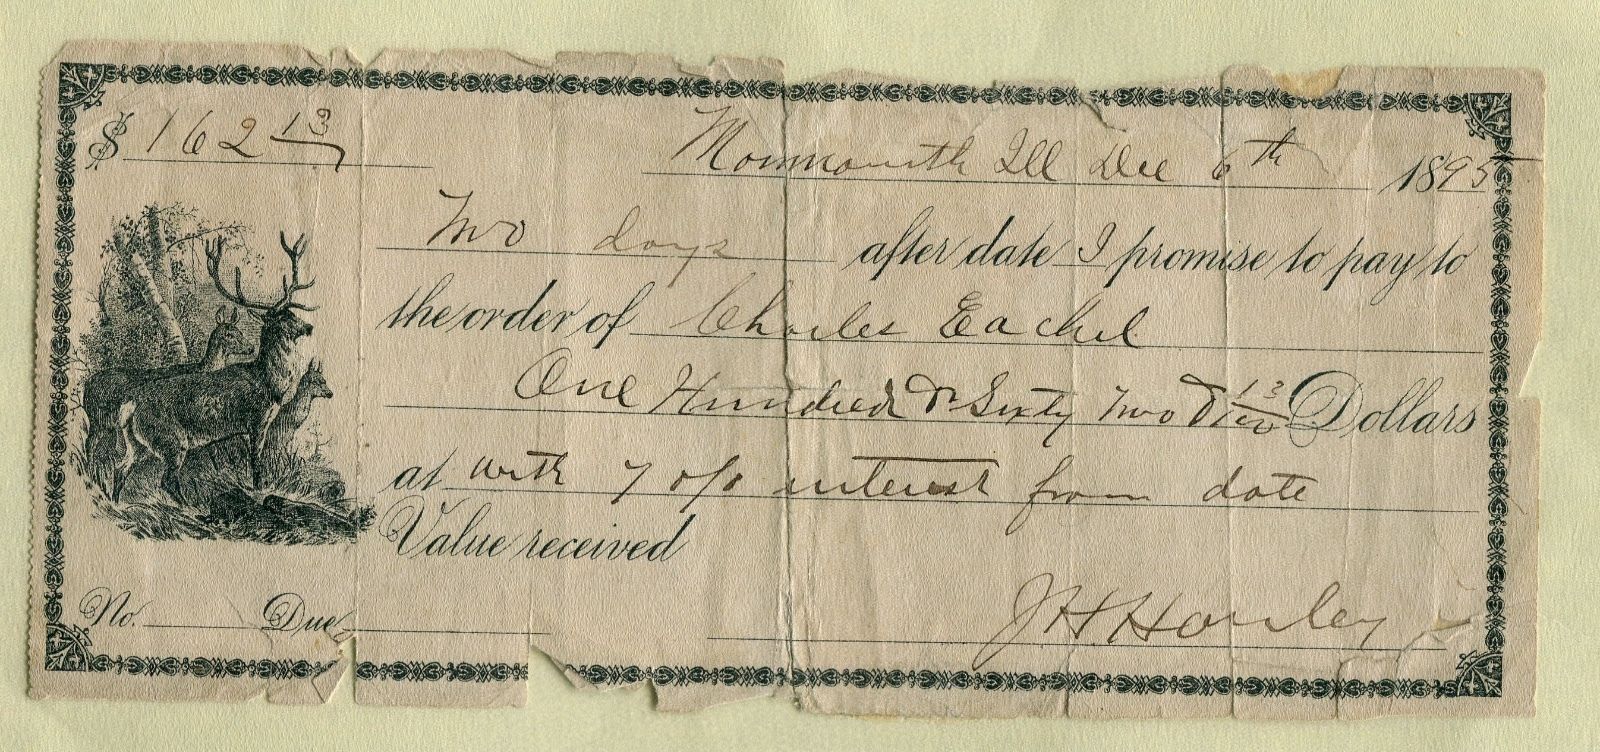 $ 162 13/ Monmouth Ill Dec 6th 1895
Two days after date I promise to pay to
the order of Charles Eachel
One Hundred & Sixty Two & 13/100 Dollars
at with 7 o/o interest from date
Value received
No. Due
J H Hanley